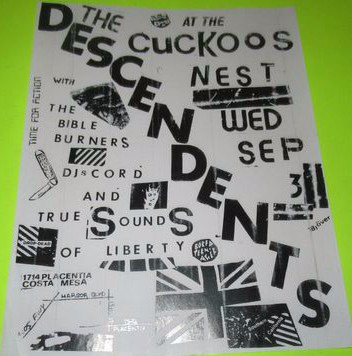 THE
DESCENDENTS
AT THE
CUCKOOS
NEST
WED
SEP
3
TIME FOR ACTION
WITH
THE
BIBLE
BURNERS
DISCORD
AND
TRUE SOUNDS
OF LIBERTY
BORED
TEENS
1714 PLACENTIA
COSTA MESA
HARBOR BLVD.
PLACENTIA